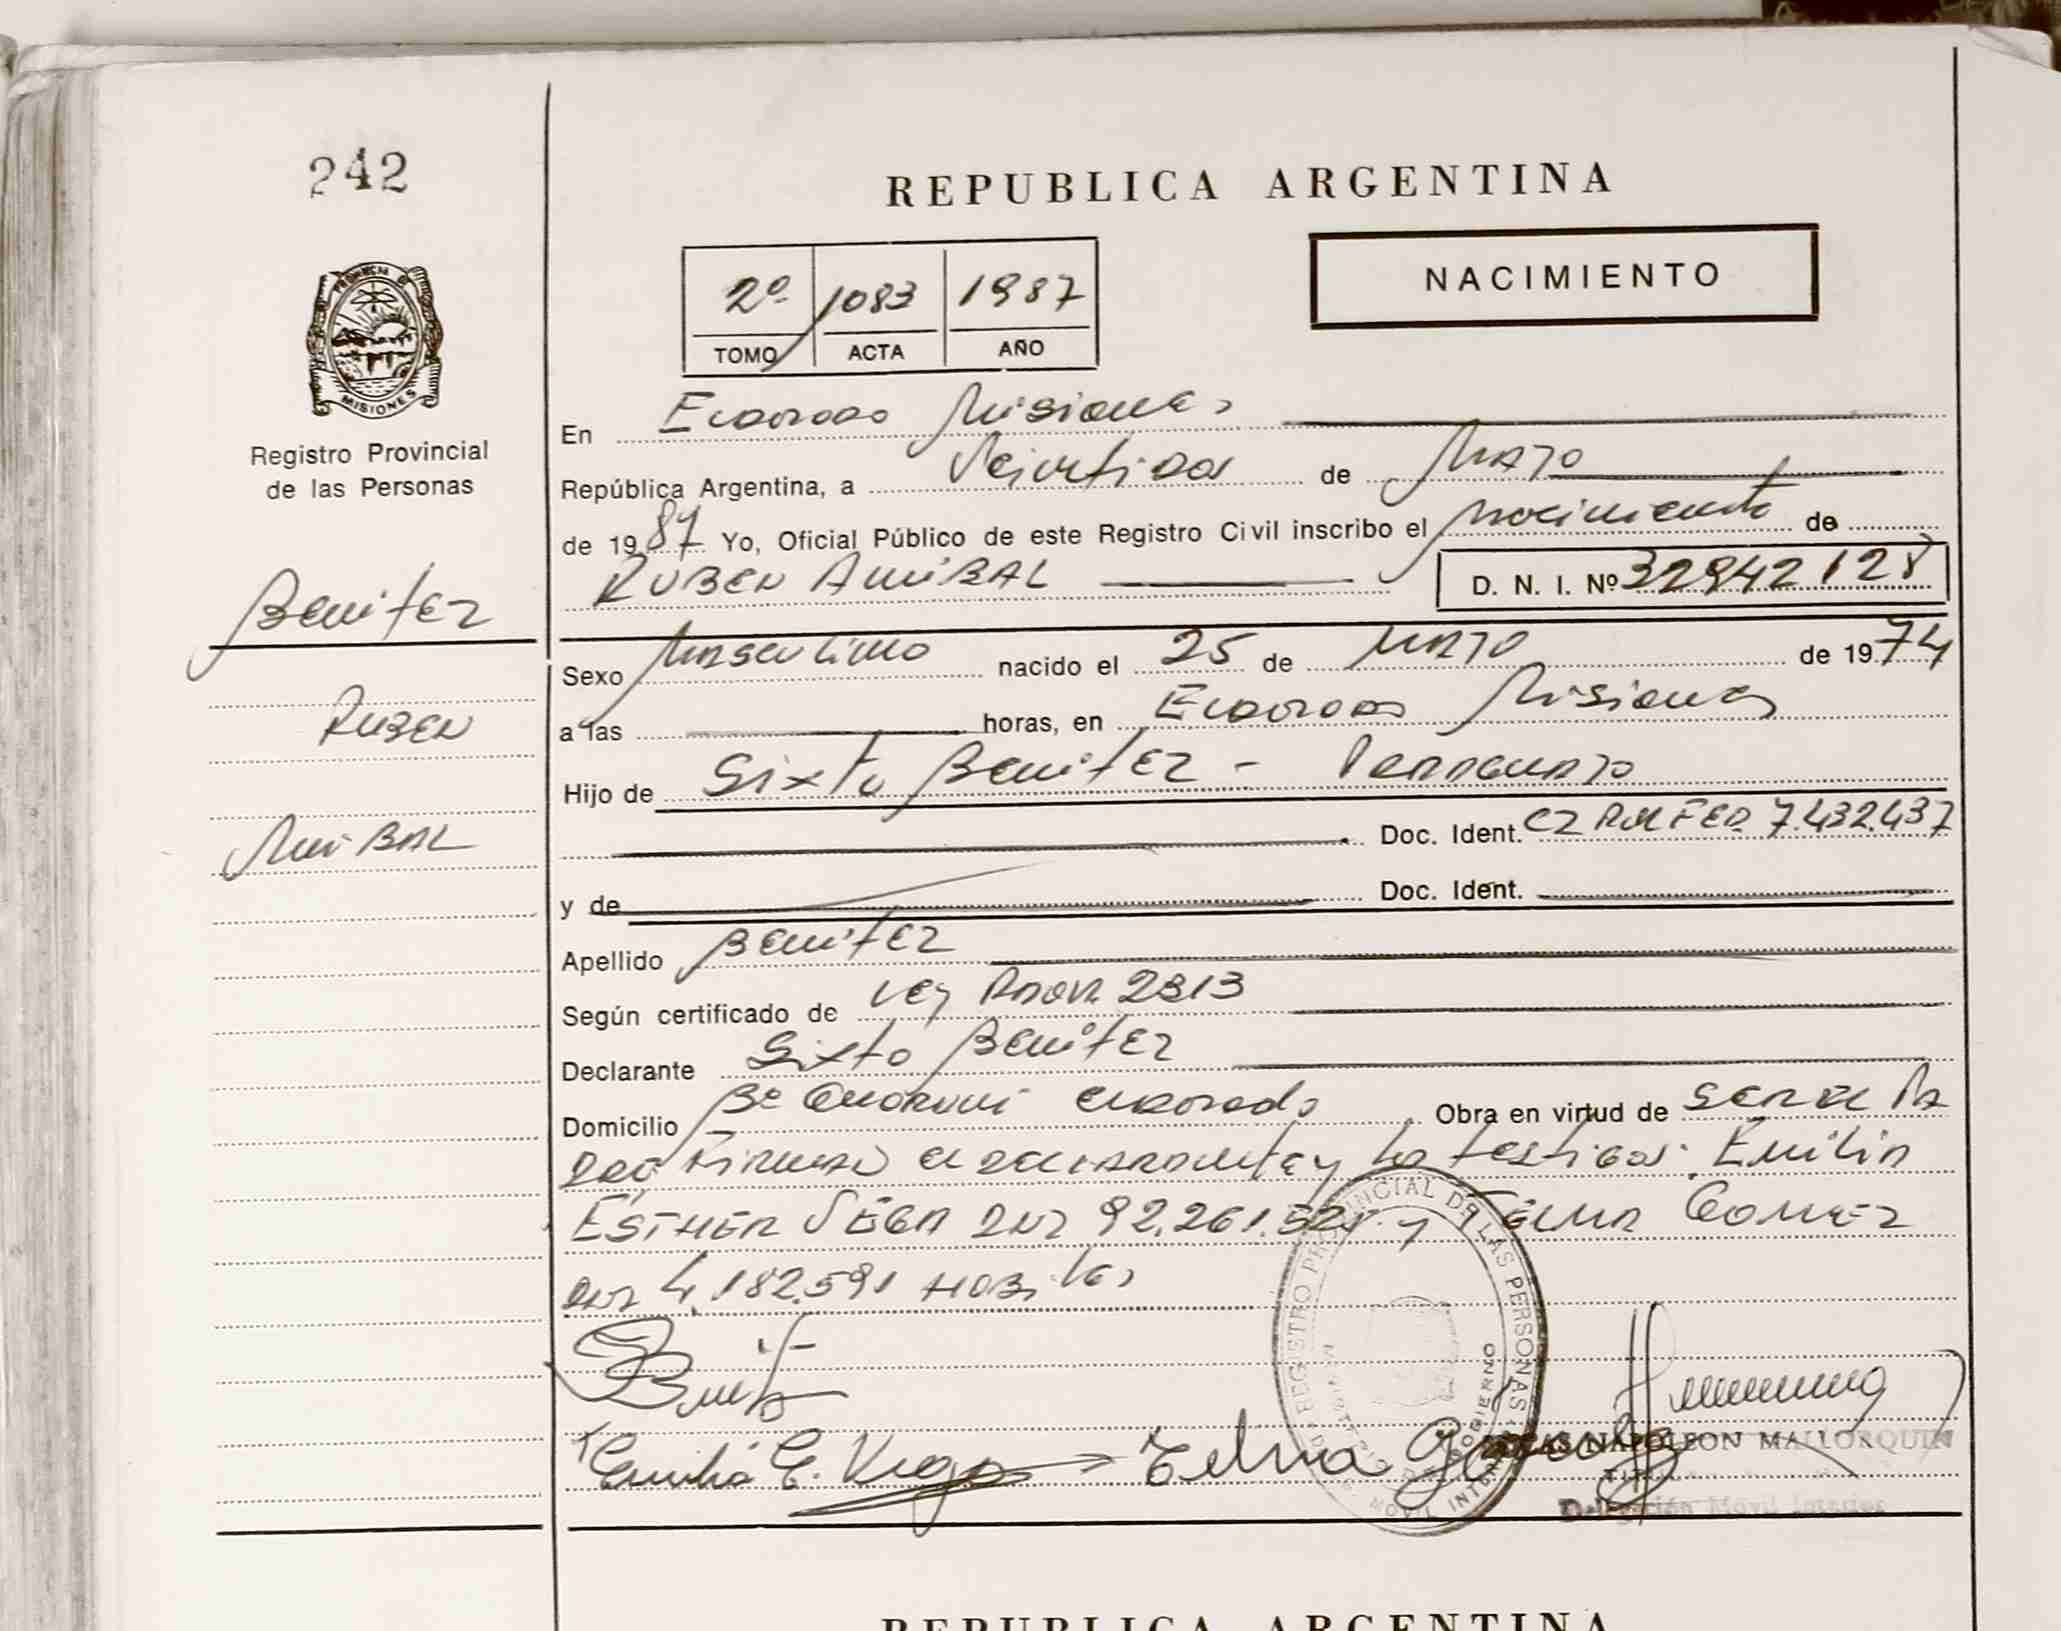 242
REPUBLICA ARGENTINA
NACIMIENTO
2º 1083 1987
TOMO ACTA AÑO
PROVINCIA DE
MISIONES
Registro Provincial
de las Personas
Benitez
RUBEN
AniBAL
En Eldorado Misiones,
República Argentina, a Veintidos de MAYO
de 1987 Yo, Oficial Público de este Registro Civil inscribo el nacimiento de
RUBEN AniBAL D. N. I. Nº 32942128
Sexo Masculino nacido el 25 de MAYO de 1974
a las horas, en Eldorado Misiones
Hijo de Sixto Benitez - Paraguayo
Doc. Ident. CI Pol FED. 7.432.437
y de Doc. Ident.
Apellido Benitez
Según certificado de Ley 2313
Declarante Sixto Benitez
Domicilio Bº Guarani Eldorado Obra en virtud de
Firman el declarante y los testigos: Emilia
ESTHER VEGA DNI 92.261.528 y TELMA GOMEZ
DNI 4.182.591
REGISTRO PROVINCIAL DE LAS PERSONAS
GOBIERNO
MOVIL INTERIOR
Emilia E. Vega Telma Gomez
NAPOLEON MALLORQUIN
Delegación Móvil Interior
REPUBLICA ARGENTINA